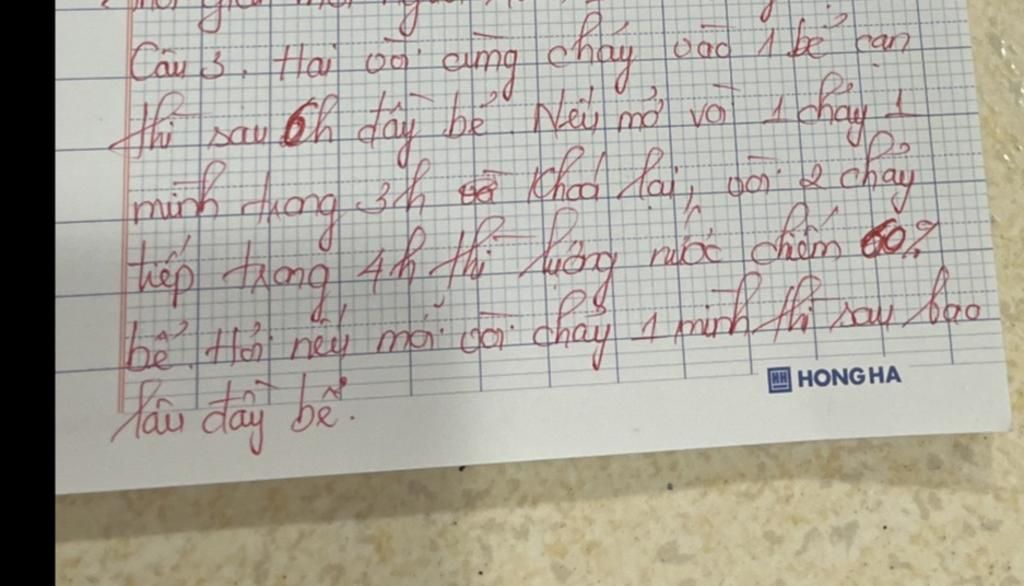 Câu 3. Hai vòi cùng chảy vào 1 bể cạn
thì sau 6h đầy bể. Nếu mở vòi 1 chảy 1
mình trong 3h khoá lại, vòi 2 chảy
tiếp trong 4h thì lượng nước chiếm 60%
bể. Hỏi nếu mỗi vòi chảy 1 mình thì sau bao
lâu đầy bể.
HONG HA